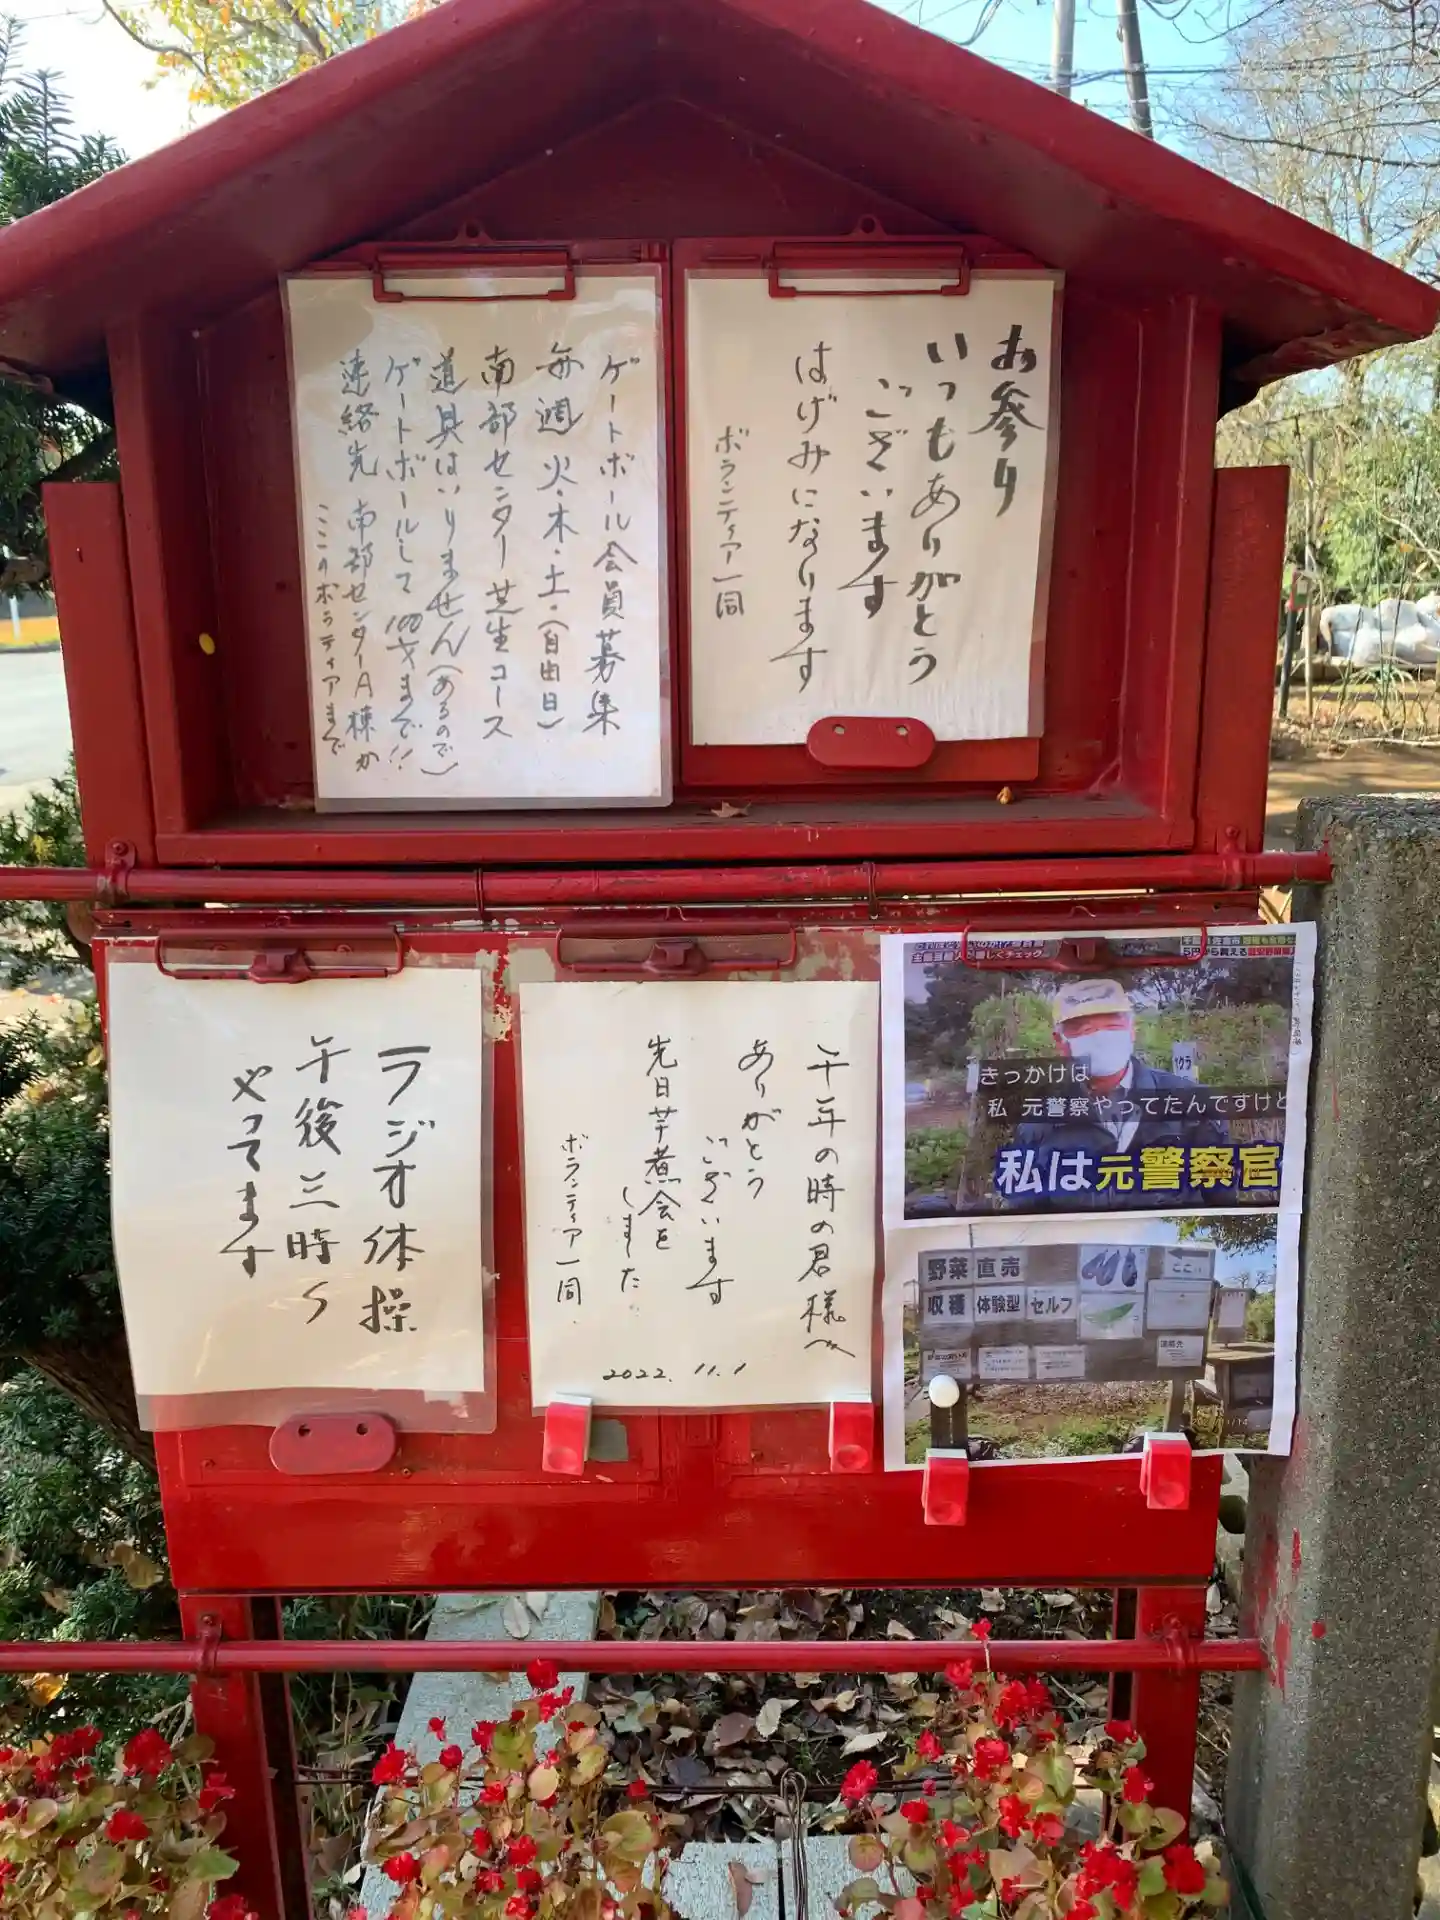 お参り
いつもありがとう
ございます
はげみになります
ボランティア一同
ゲートボール会員募集
毎週 火・木・土・(自由日)
南部センター 芝生コース
道具はいりません(あるので)
ゲートボールして 100才まで!!
連絡先 南部センターA棟か
ここのボラティアまで
ラジオ体操
午後三時〜
やってます
千年の時の君様へ
ありがとう
ございます
先日芋煮会を
しました。
ボランティア一同.
2022. 11. 1
土
しくチェック
千葉 佐倉市
5円から買える
ヤクラ
きっかけは
私 元警察やってたんですけど
私は元警察官
野菜 直売
収穫 体験型 セルフ
ここ
連絡先